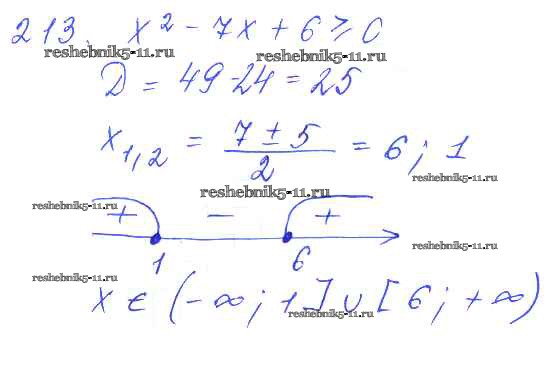 213. x² - 7x + 6 ≥ 0
reshebnik5-11.ru reshebnik5-11.ru
D = 49-24 = 25
x₁,₂ = (7 ± 5)/2 = 6; 1
reshebnik5-11.ru
reshebnik5-11.ru
reshebnik5-11.ru
+ - +
reshebnik5-11.ru
1 6
reshebnik5-11.ru
x ∈ (-∞; 1] ∪ [6; +∞)
reshebnik5-11.ru